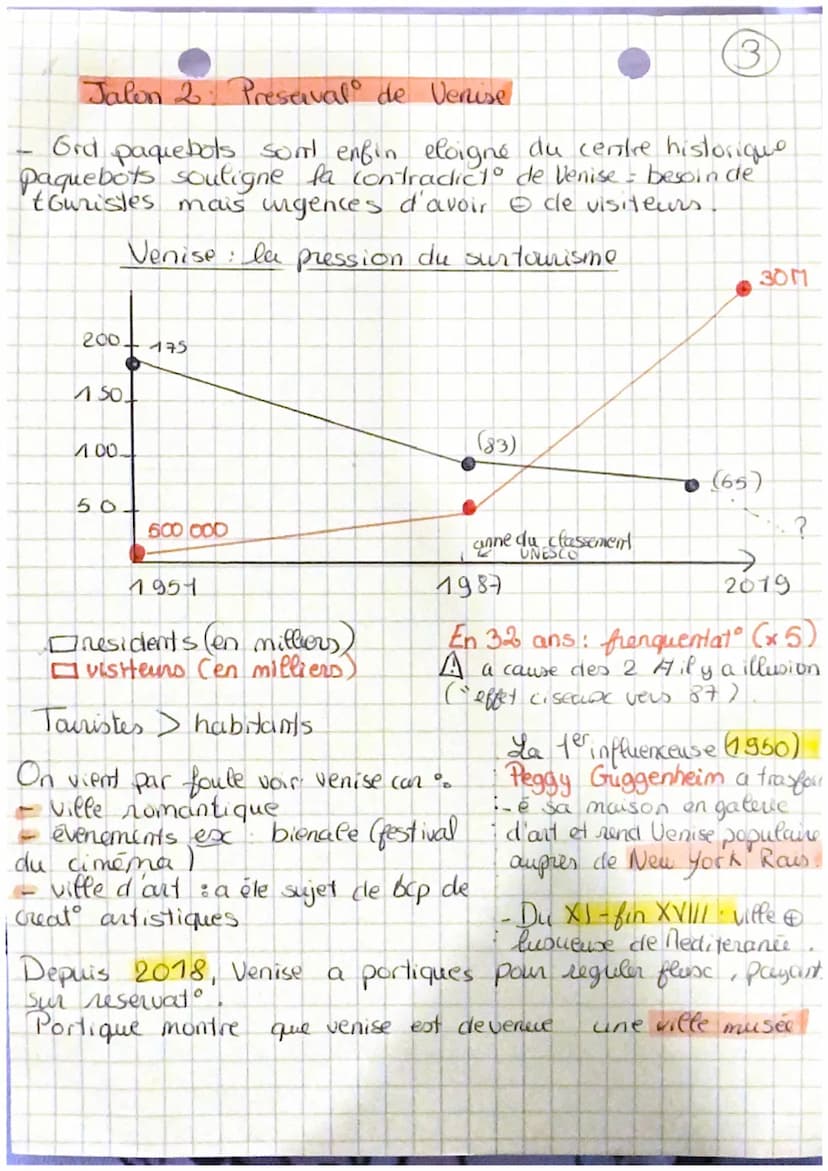 3
Jalon 2 : Préserval° de Venise
- Grd paquebots sont enfin eloigné du centre historique
paquebots souligne la contradict° de Venise = besoin de
touristes mais urgences d'avoir ⊖ de visiteurs.
Venise : la pression du surtourisme
30M
200
175
150
100
(83)
50
(65)
500 000
?
anne du classement
UNESCO
1951
1987
2019
residents (en milliers)
visiteurs (en milliers)
En 32 ans : frenquentat° (x 5)
⚠ a cause des 2 il y a illusion
("effet ciseaux vers 87)
Touristes > habitants
La 1er influenceuse (1950)
Peggy Guggenheim a trasfour
-é sa maison en galerie
d'art et rend Venise populaire
aupres de New York Rais.
On vient par foule voir venise car :
- ville romantique
- évenements ex : bienale (festival
du cinéma)
- ville d'art : a éte sujet de bcp de
creat° artistiques
- Du XI - fin XVIII : ville ⊕
luxueuse de Mediteranée.
Depuis 2018, Venise a portiques pour reguler flux, payant
sur reservat°.
Portique montre que venise est devenue une ville musée